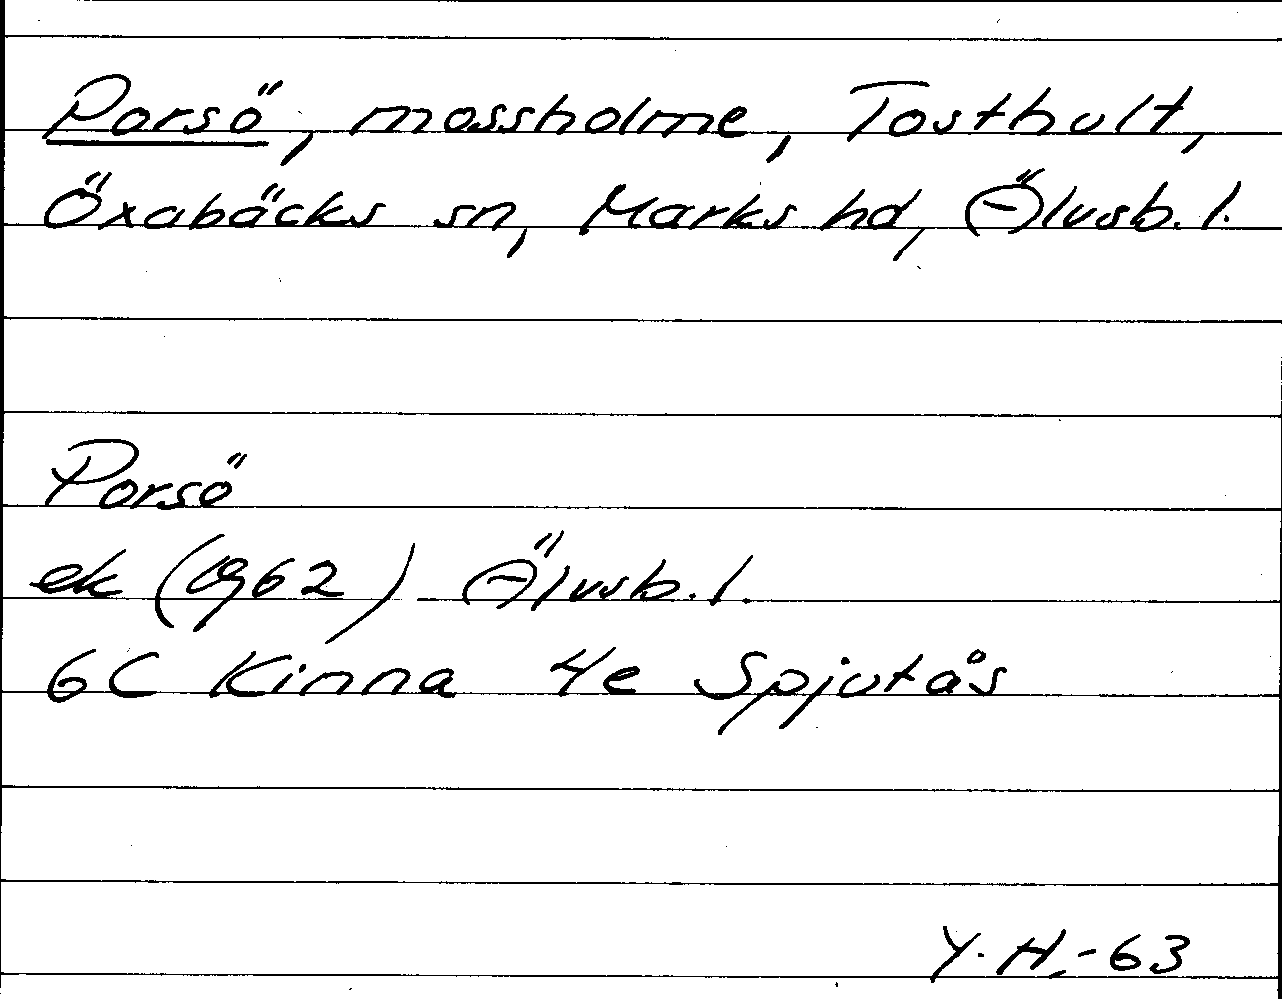 Porsö, mossholme, Tosthult,
Öxabäcks sn, Marks hd, Älvsb. l.
Porsö
ek (1962) Älvsb. l.
6C Kinna 4e Spjutås
Y. H. -63